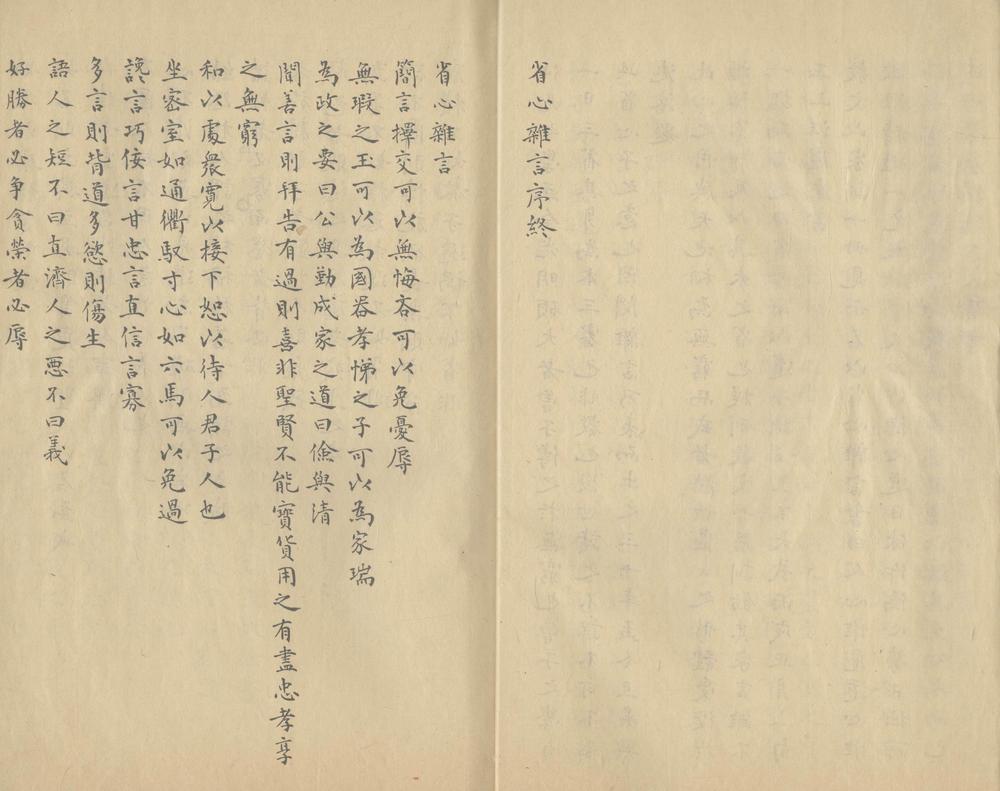 省心雜言序終
省心雜言
簡言擇交可以無悔吝可以免憂辱
無瑕之玉可以為國器孝悌之子可以為家瑞
為政之要曰公與勤成家之道曰儉與清
聞善言則拜告有過則喜非聖賢不能寶貨用之有盡忠孝享
之無窮
和以處衆寬以接下恕以待人君子人也
坐密室如通衢馭寸心如六馬可以免過
讒言巧佞言甘忠言直信言寡
多言則背道多慾則傷生
語人之短不曰直濟人之惡不曰義
好勝者必争貪榮者必辱